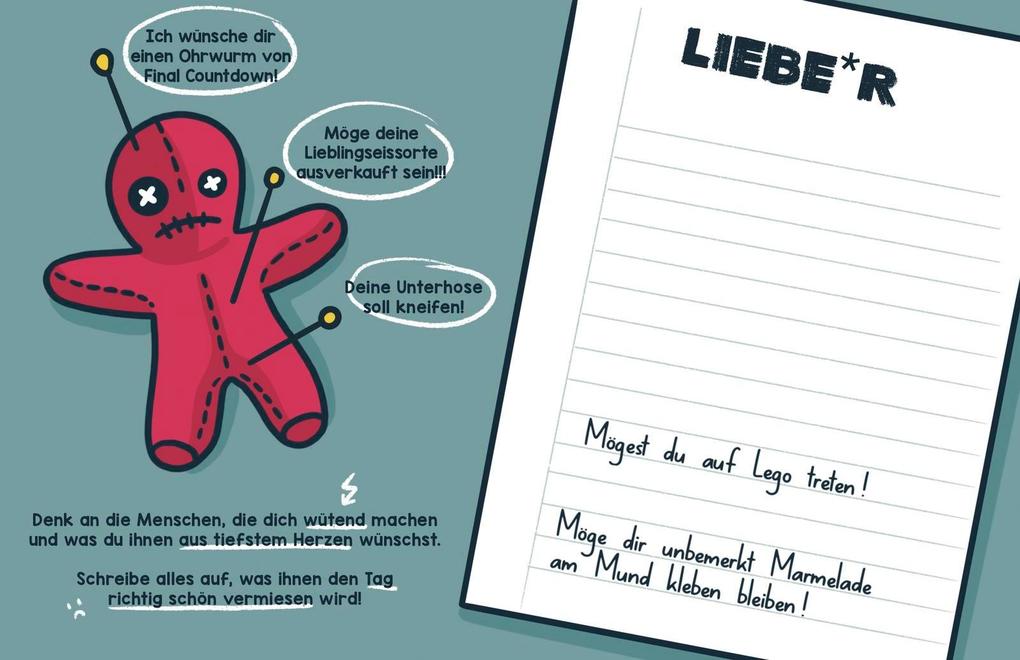 Ich wünsche dir
einen Ohrwurm von
Final Countdown!
Möge deine
Lieblingseissorte
ausverkauft sein!!!
Deine Unterhose
soll kneifen!
Denk an die Menschen, die dich wütend machen
und was du ihnen aus tiefstem Herzen wünschst.
Schreibe alles auf, was ihnen den Tag
richtig schön vermiesen wird!
LIEBE*R
Mögest du auf Lego treten!
Möge dir unbemerkt Marmelade
am Mund kleben bleiben!